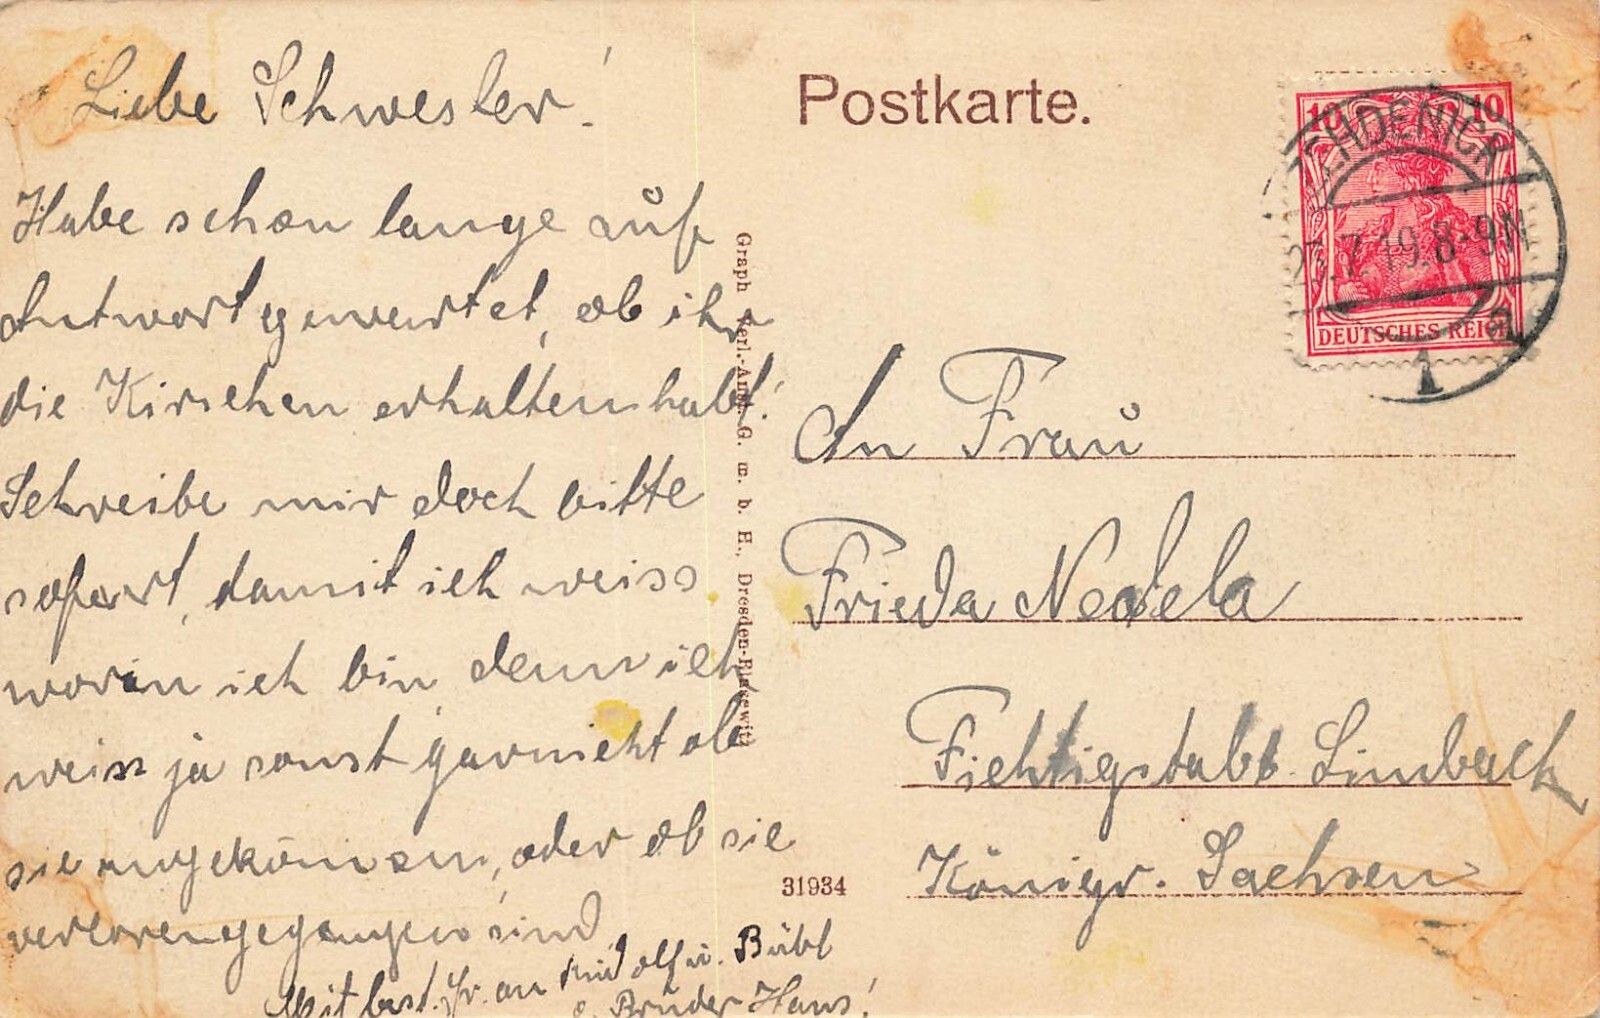 Liebe Schwester!
Habe schon lange auf
Antwort gewartet, ob ihr
die Kirschen erhalten habt!
Schreibe mir doch bitte
sofort, damit ich weiss
woran ich bin, denn ich
weiss ja sonst garnicht ob
sie angekommen, oder ob sie
verloren gegangen sind
Mit best. Gr. an Rudolf u. Bubi
Bruder Hans!
Graph. Verl.-Anst. G. m. b. H., Dresden-Blasewitz
31934
Postkarte.
10 10
DEUTSCHES REICH
ZEHDENICK
7.19.8-9N
1 a
An Frau
Frieda Nedela
Limbach
Königr. Sachsen